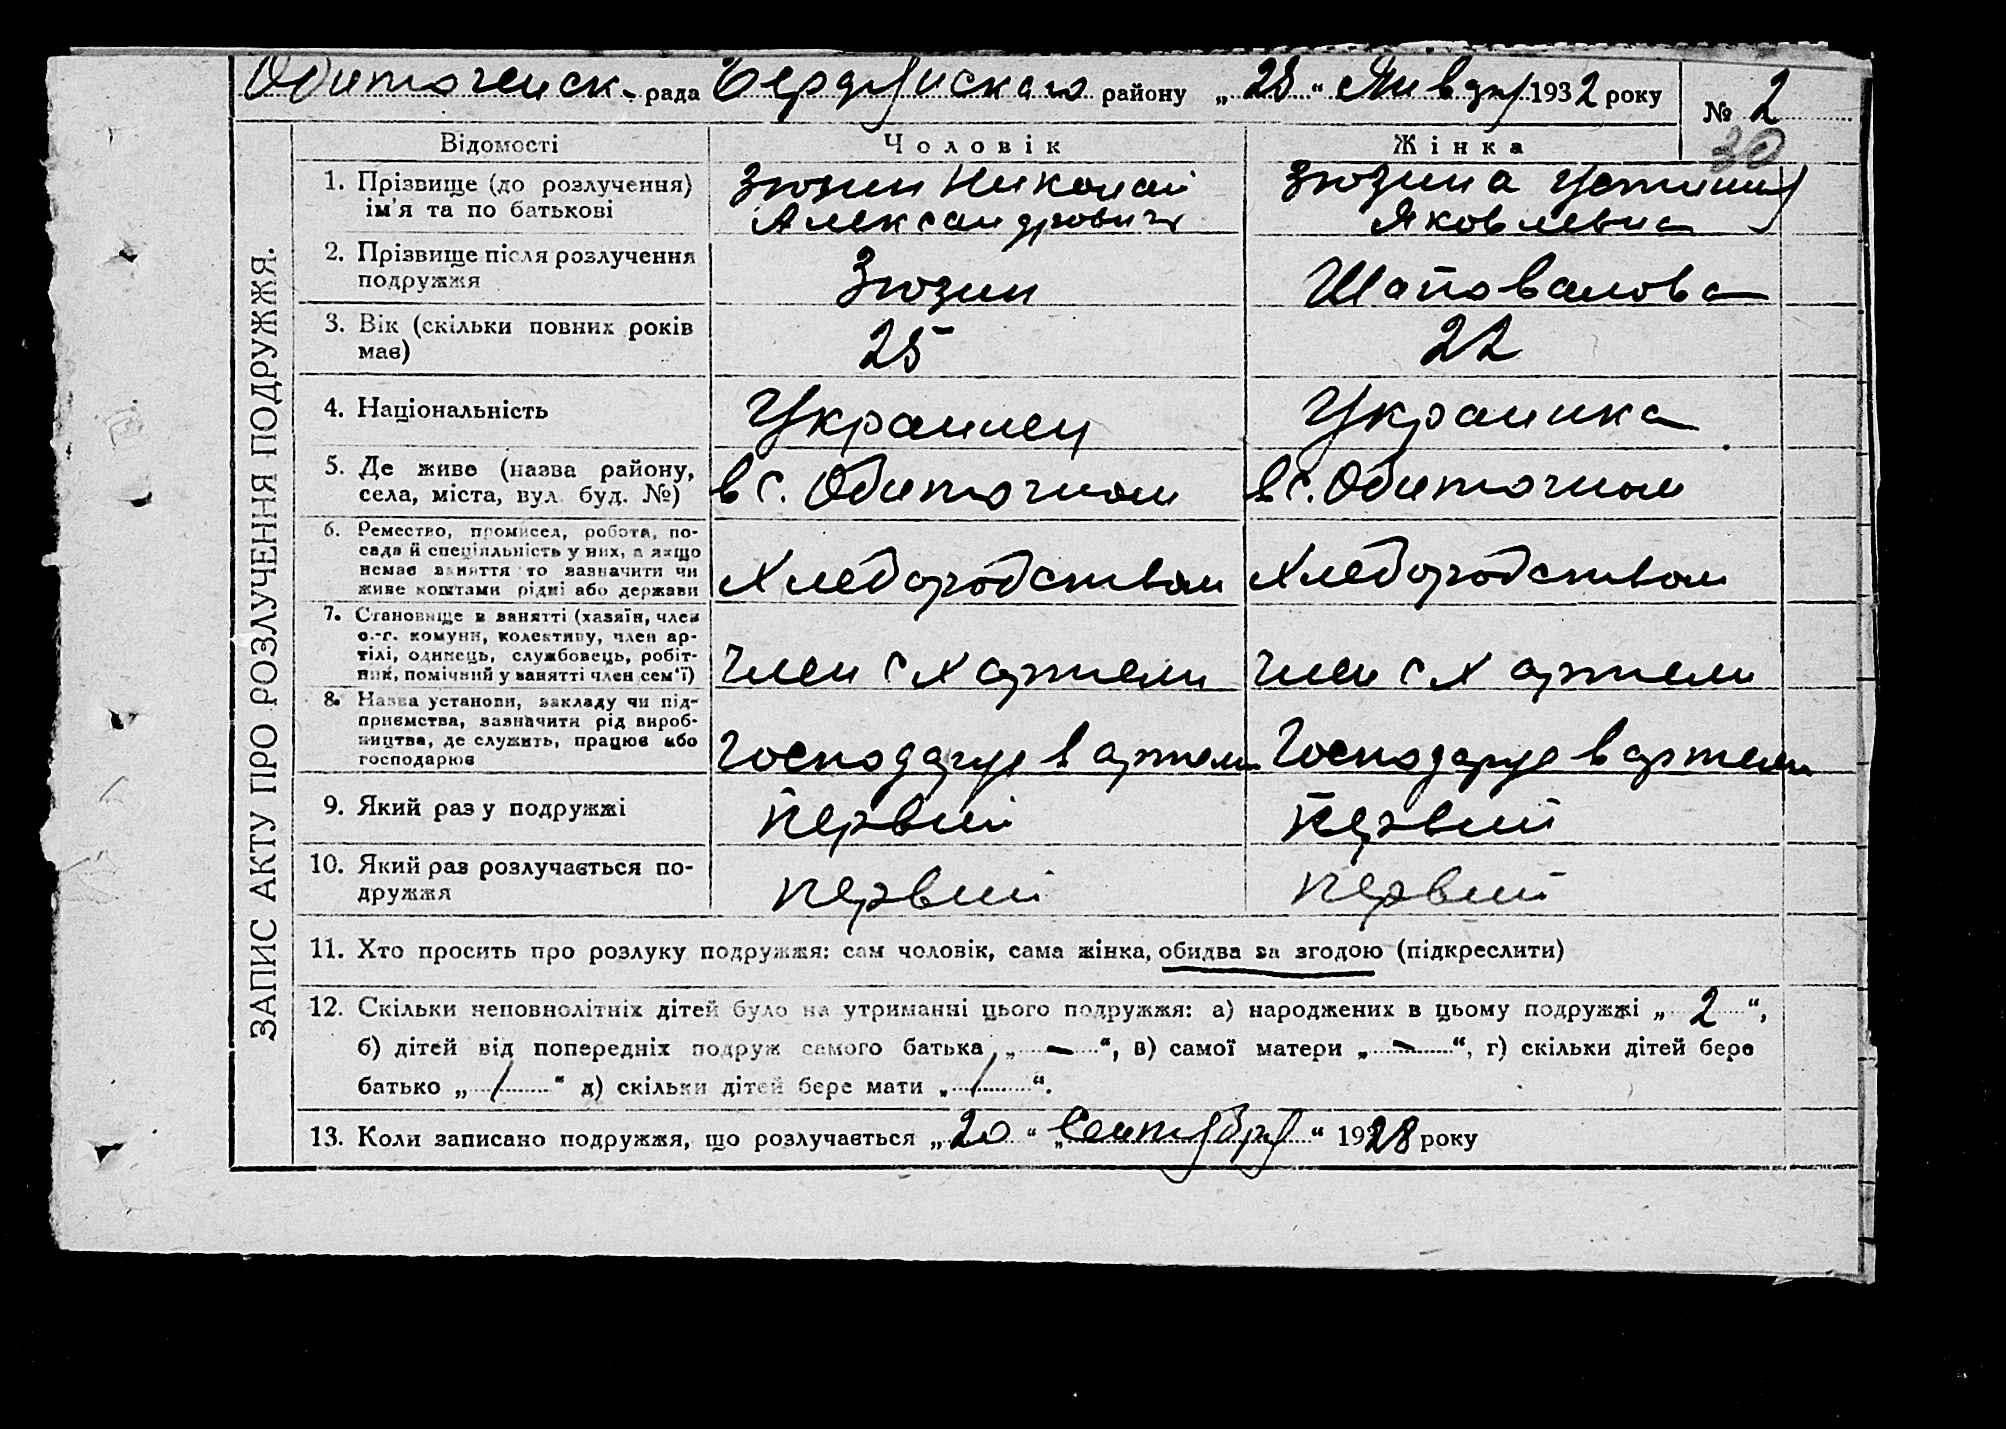 Обиточенск. рада Бердянского району „28“ Января 1932 року № 2
30
ЗАПИС АКТУ ПРО РОЗЛУЧЕННЯ ПОДРУЖЖЯ.
Відомості Чоловік Жінка
1. Прізвище (до розлучення) Зюзин Николай Зюзина Устиния
ім'я та по батькові Александрович Яковлевна
2. Прізвище після розлучення
подружжя Зюзин Шаповалова
3. Вік (скільки повних років
має) 25 22
4. Національність Украинец Украинка
5. Де живе (назва району,
села, міста, вул. буд. №) в с. Обиточном в с. Обиточном
6. Ремество, промисел, робота, по-
сада й спеціяльність у них, а якщо
немає заняття то зазначити чи
живе коштами рідні або держави Хлеборобством Хлеборобством
7. Становище в занятті (хазяїн, член
с.-г. комуни, колективу, член ар-
тілі, одинець, службовець, робіт-
ник, помічний у занятті член сем'ї) Член с х артели Член с х артели
8. Назва установи, закладу чи під-
приємства, зазначити рід вироб-
ництва, де служить, працює або
господарює Господарує в артели Господарує в артели
9. Який раз у подружжі Первий Первий
10. Який раз розлучається по-
дружжя первий первий
11. Хто просить про розлуку подружжя: сам чоловік, сама жінка, обидва за згодою (підкреслити)
12. Скільки неповнолітніх дітей було на утриманні цього подружжя: а) народжених в цьому подружжі „ 2 “,
б) дітей від попередніх подруж самого батька „ — “, в) самої матери „ — “, г) скільки дітей бере
батько „ / “ д) скільки дітей бере мати „ / “.
13. Коли записано подружжя, що розлучається „20“ „Сентября“ 1928 року